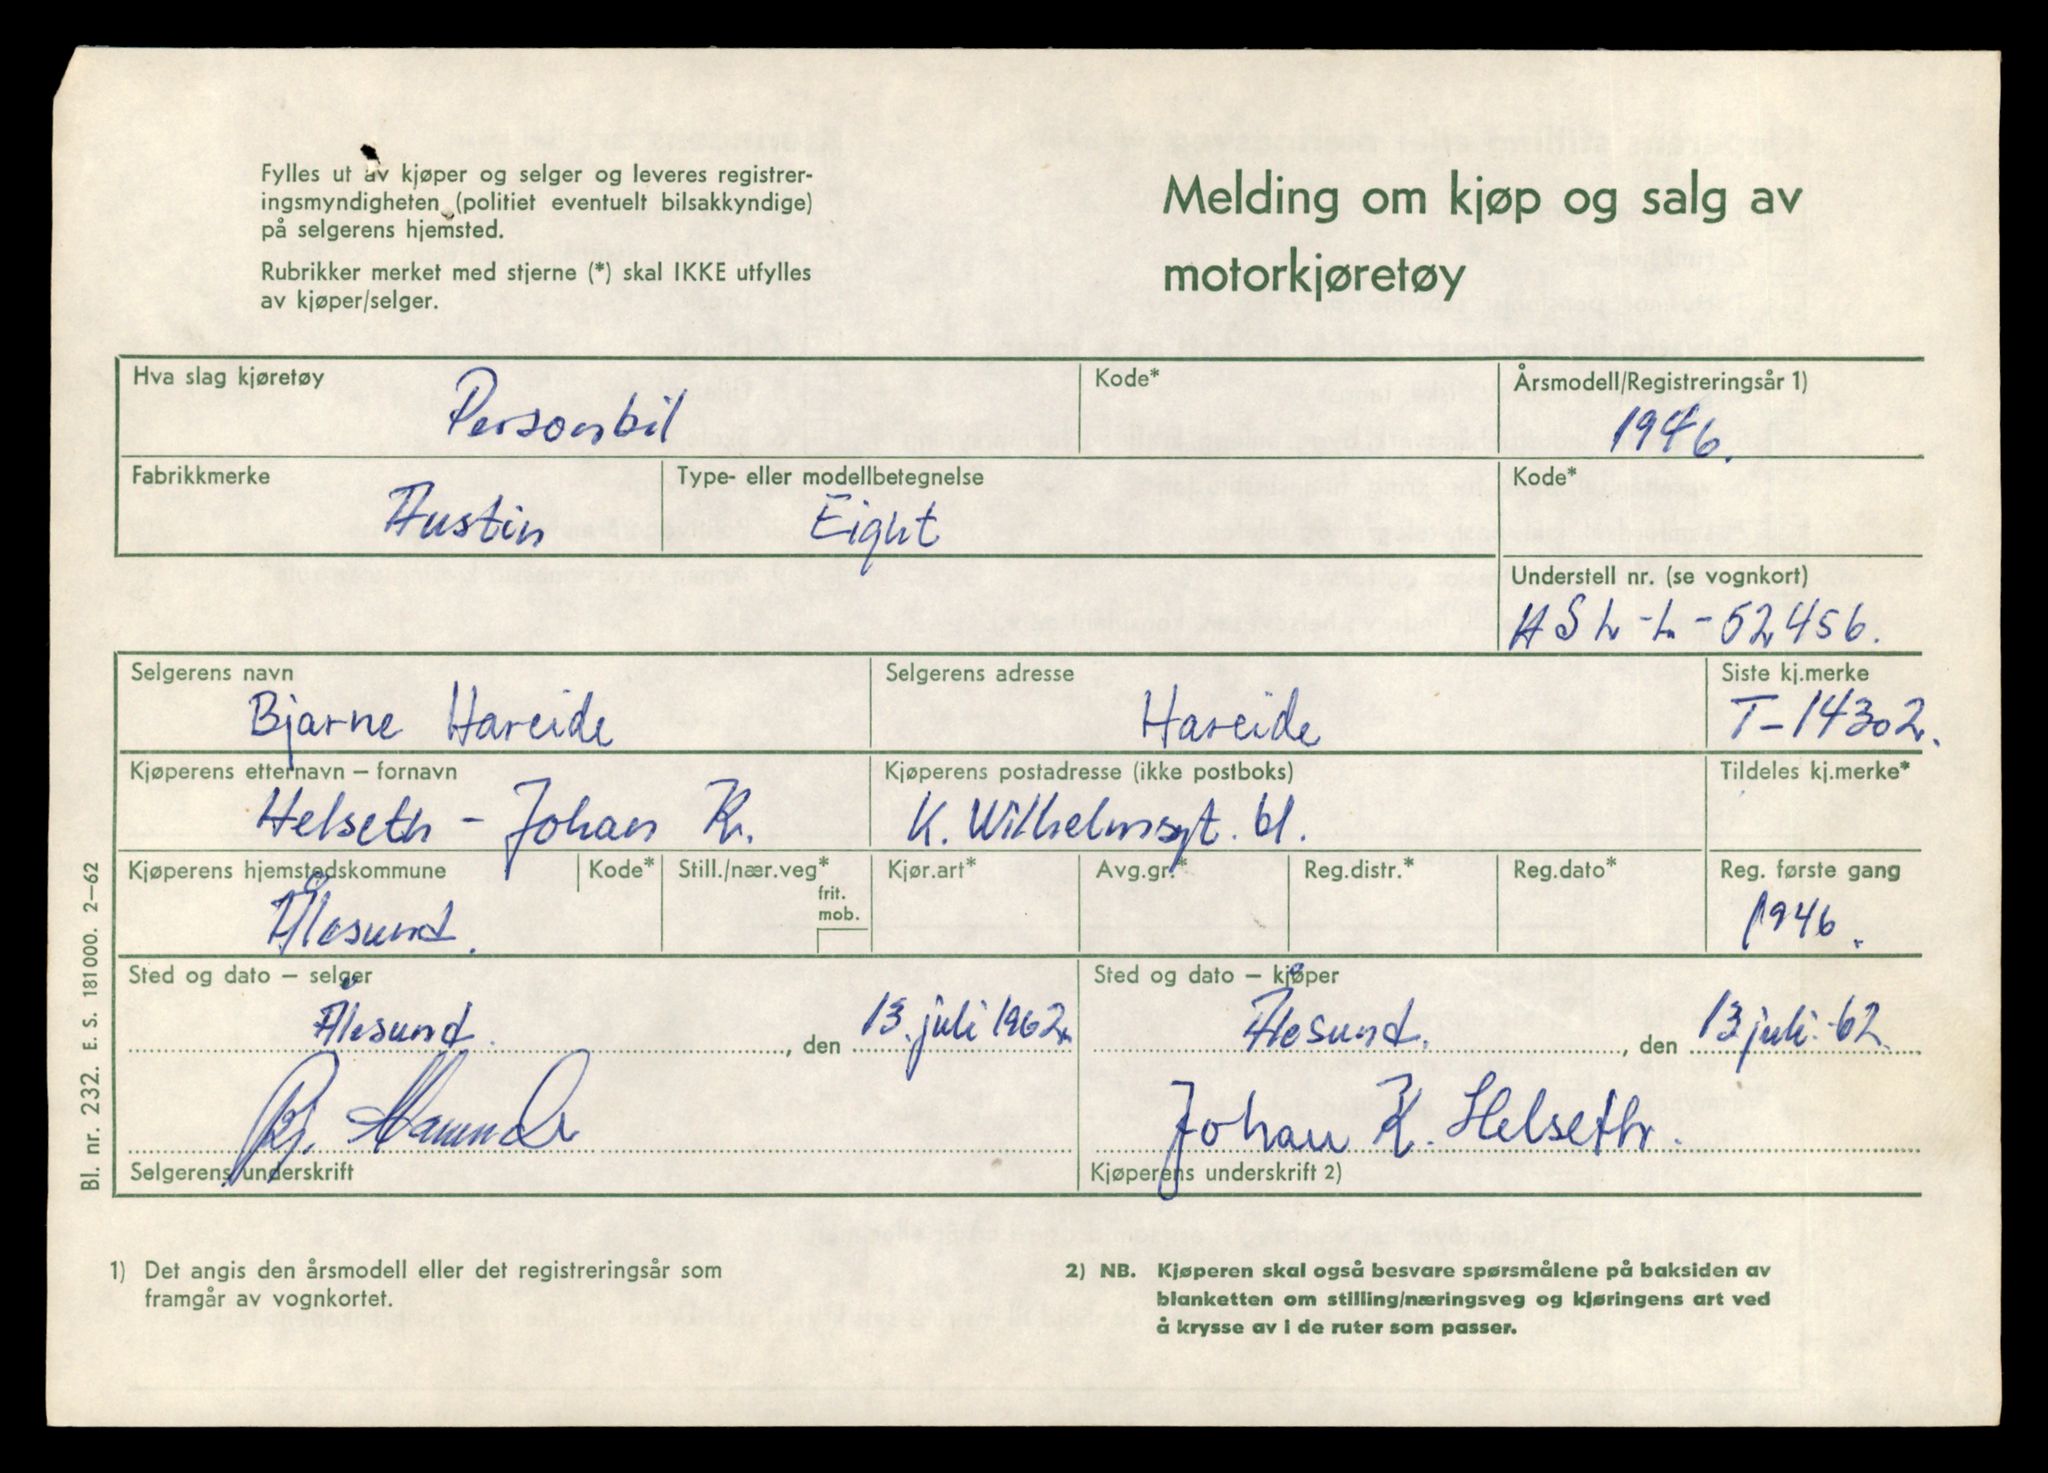 Fylles ut av kjøper og selger og leveres registrer-
ingsmyndigheten (politiet eventuelt bilsakkyndige)
på selgerens hjemsted.
Rubrikker merket med stjerne (*) skal IKKE utfylles
av kjøper/selger.
Melding om kjøp og salg av
motorkjøretøy
Hva slag kjøretøy
Personbil
Kode*
Årsmodell/Registreringsår 1)
1946.
Fabrikkmerke
Austin
Type- eller modellbetegnelse
Eight
Kode*
Understell nr. (se vognkort)
ASL-L-52456.
Selgerens navn
Bjarne Hareide
Selgerens adresse
Hareide
Siste kj.merke
T-14302.
Kjøperens etternavn – fornavn
Helseth - Johan Kr.
Kjøperens postadresse (ikke postboks)
K. Wilhelmsgt. bl.
Tildeles kj.merke*
Kjøperens hjemstedskommune
Ålesund.
Kode*
Still./nær.veg*
frit.
mob.
Kjør.art*
Avg.gr.*
Reg.distr.*
Reg.dato*
Reg. første gang
1946.
Sted og dato – selger
Ålesund. , den 13. juli 1962.
Sted og dato – kjøper
Ålesund. , den 13 juli-62.
Bj.
Selgerens underskrift
Johan K. Helseth.
Kjøperens underskrift 2)
Bl. nr. 232. E. S. 181000. 2–62
1) Det angis den årsmodell eller det registreringsår som
framgår av vognkortet.
2) NB. Kjøperen skal også besvare spørsmålene på baksiden av
blanketten om stilling/næringsveg og kjøringens art ved
å krysse av i de ruter som passer.